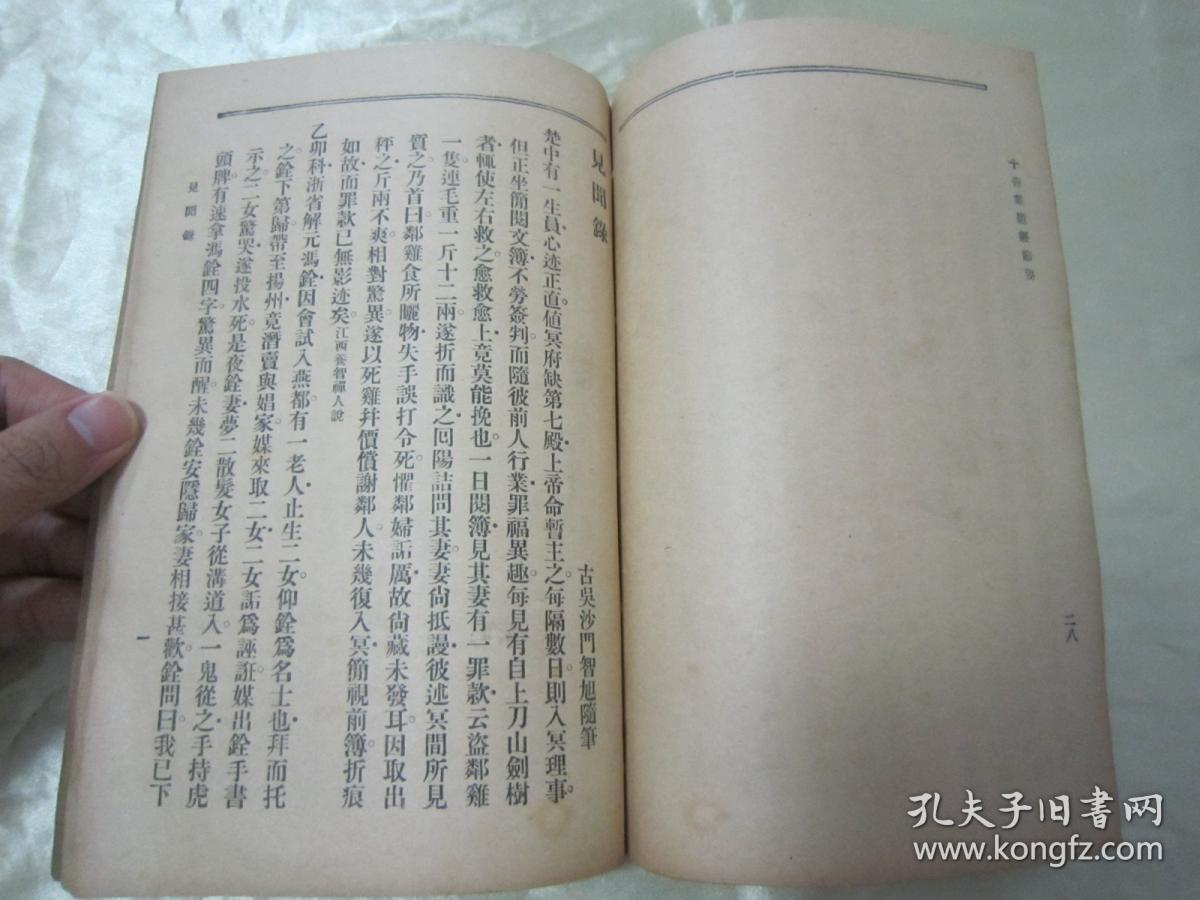 十善業道經節要
二八
見聞錄
古吳沙門智旭隨筆
楚中有一生員心迹正直値冥府缺第七殿上帝命暫主之每隔數日則入冥理事
但正坐簡閱文簿不勞簽判而隨彼前人行業罪福異趣每見有自上刀山劍樹
者輒使左右救之愈救愈上竟莫能挽也一日閱簿見其妻有一罪款云盜鄰雞
一隻連毛重一斤十二兩遂折而識之回陽詰問其妻妻尙抵謾彼述冥間所見
質之乃首曰鄰雞食所曬物失手誤打令死懼鄰婦詬厲故尙藏未發耳因取出
秤之斤兩不爽相對驚異遂以死雞幷價償謝鄰人未幾復入冥簡視前簿折痕
如故而罪款已無影迹矣江西養智禪人說
乙卯科浙省解元馮銓因會試入燕都有一老人止生二女仰銓爲名士也拜而托
之銓下第歸帶至揚州竟潛賣與娼家媒來取二女二女詬爲誣誑媒出銓手書
示之二女驚哭遂投水死是夜銓妻夢二散髮女子從溝道入一鬼從之手持虎
頭牌有速拿馮銓四字驚異而醒未幾銓安隱歸家妻相接甚歡銓問曰我已下
見聞錄
一
孔夫子旧書网
www.kongfz.com